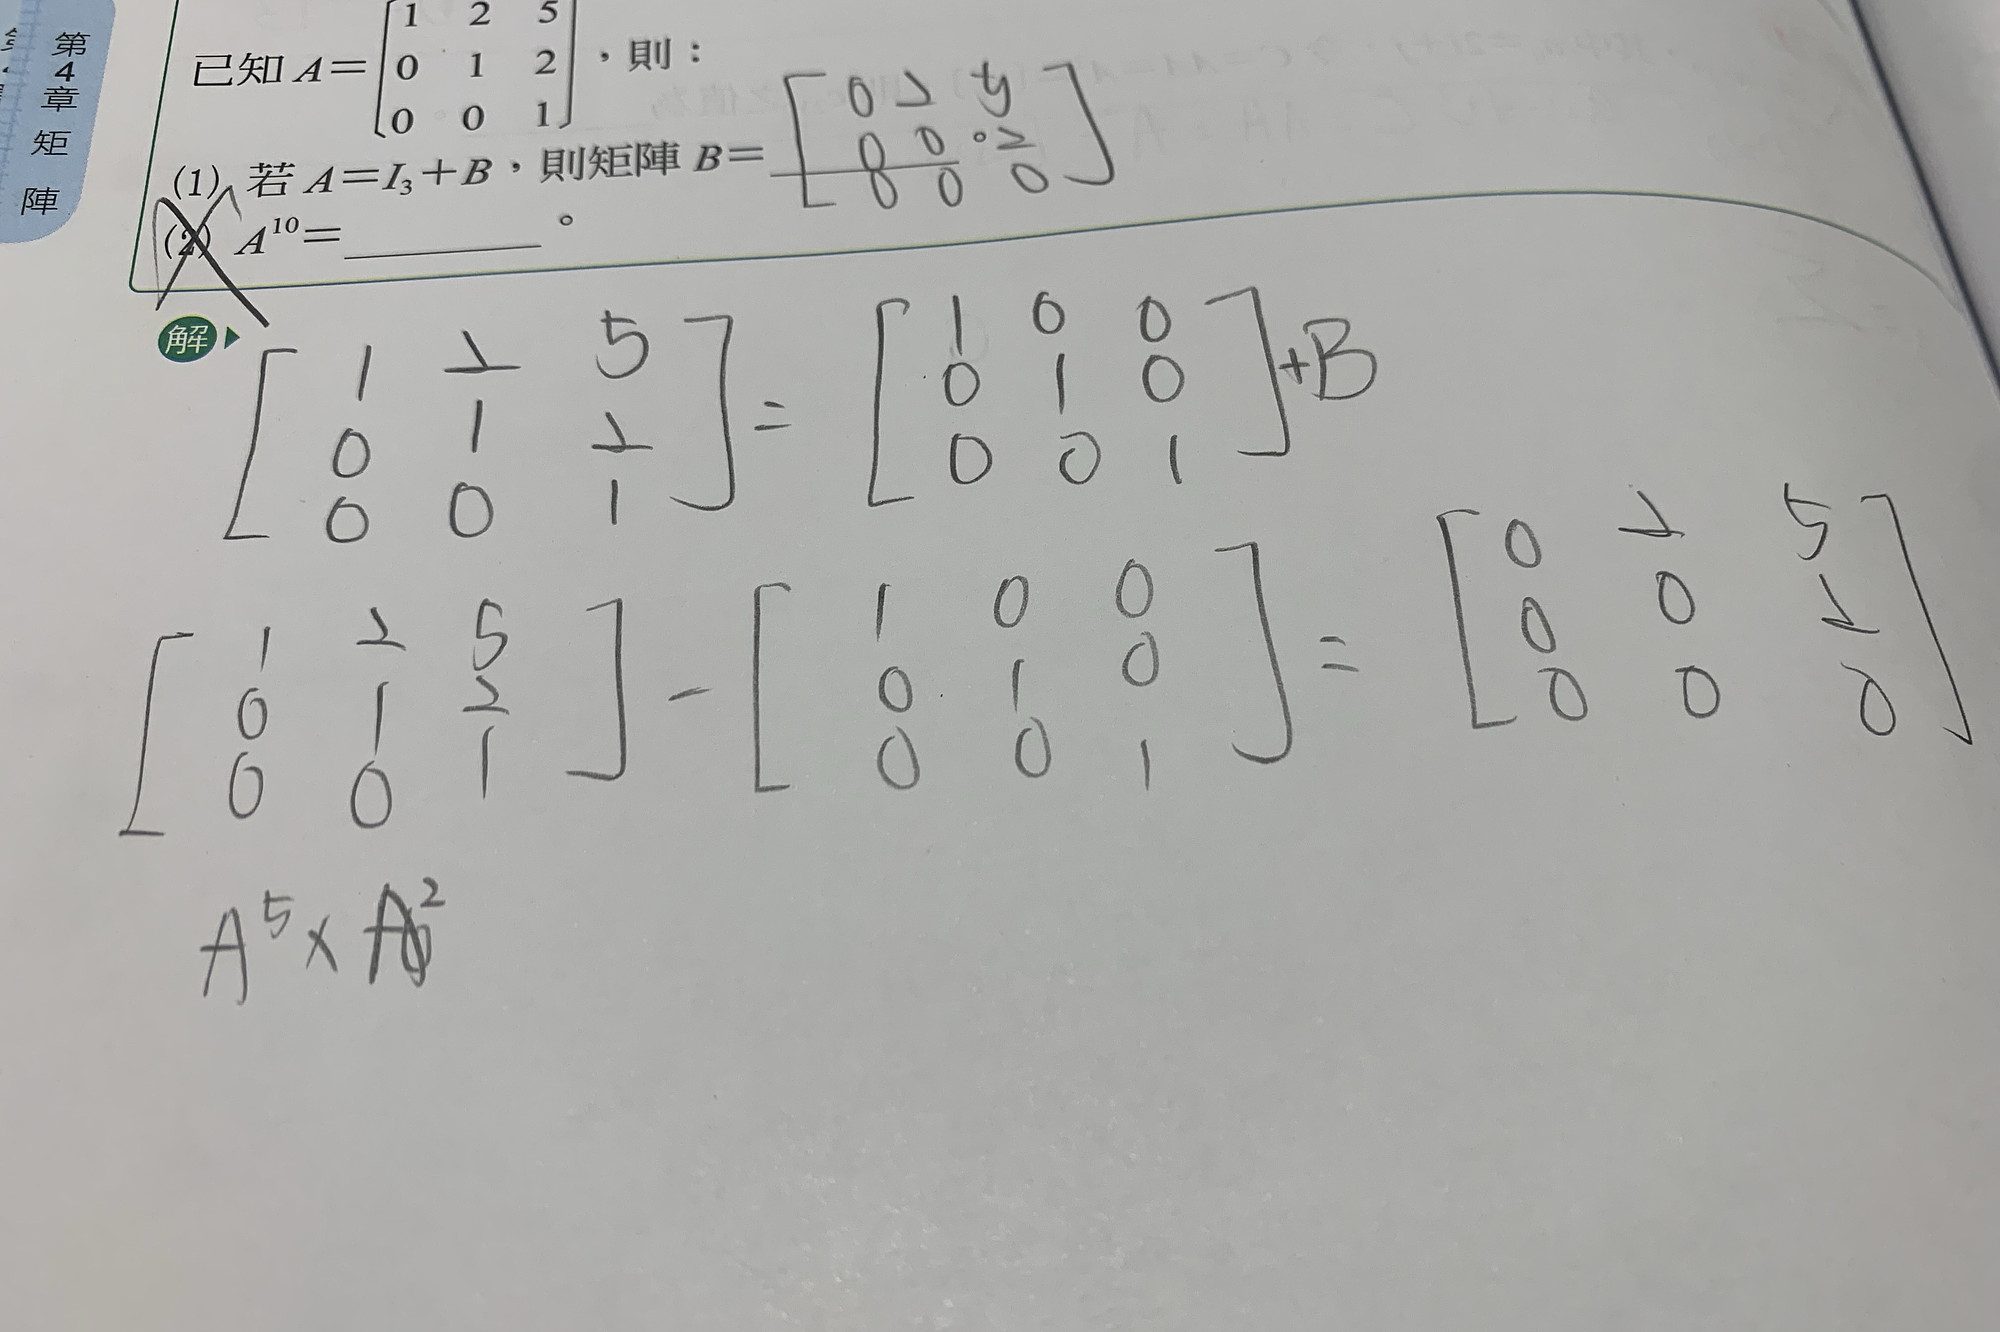 第4章 矩陣
已知 A= [1 2 5
0 1 2
0 0 1] ，則：
(1) 若 A=I₃+B，則矩陣 B= [0 2 5
0 0 2
0 0 0]
(2) A¹⁰=________。
解
[1 2 5
0 1 2
0 0 1] = [1 0 0
0 1 0
0 0 1] +B
[1 2 5
0 1 2
0 0 1] - [1 0 0
0 1 0
0 0 1] = [0 2 5
0 0 2
0 0 0]
A⁵ × A²